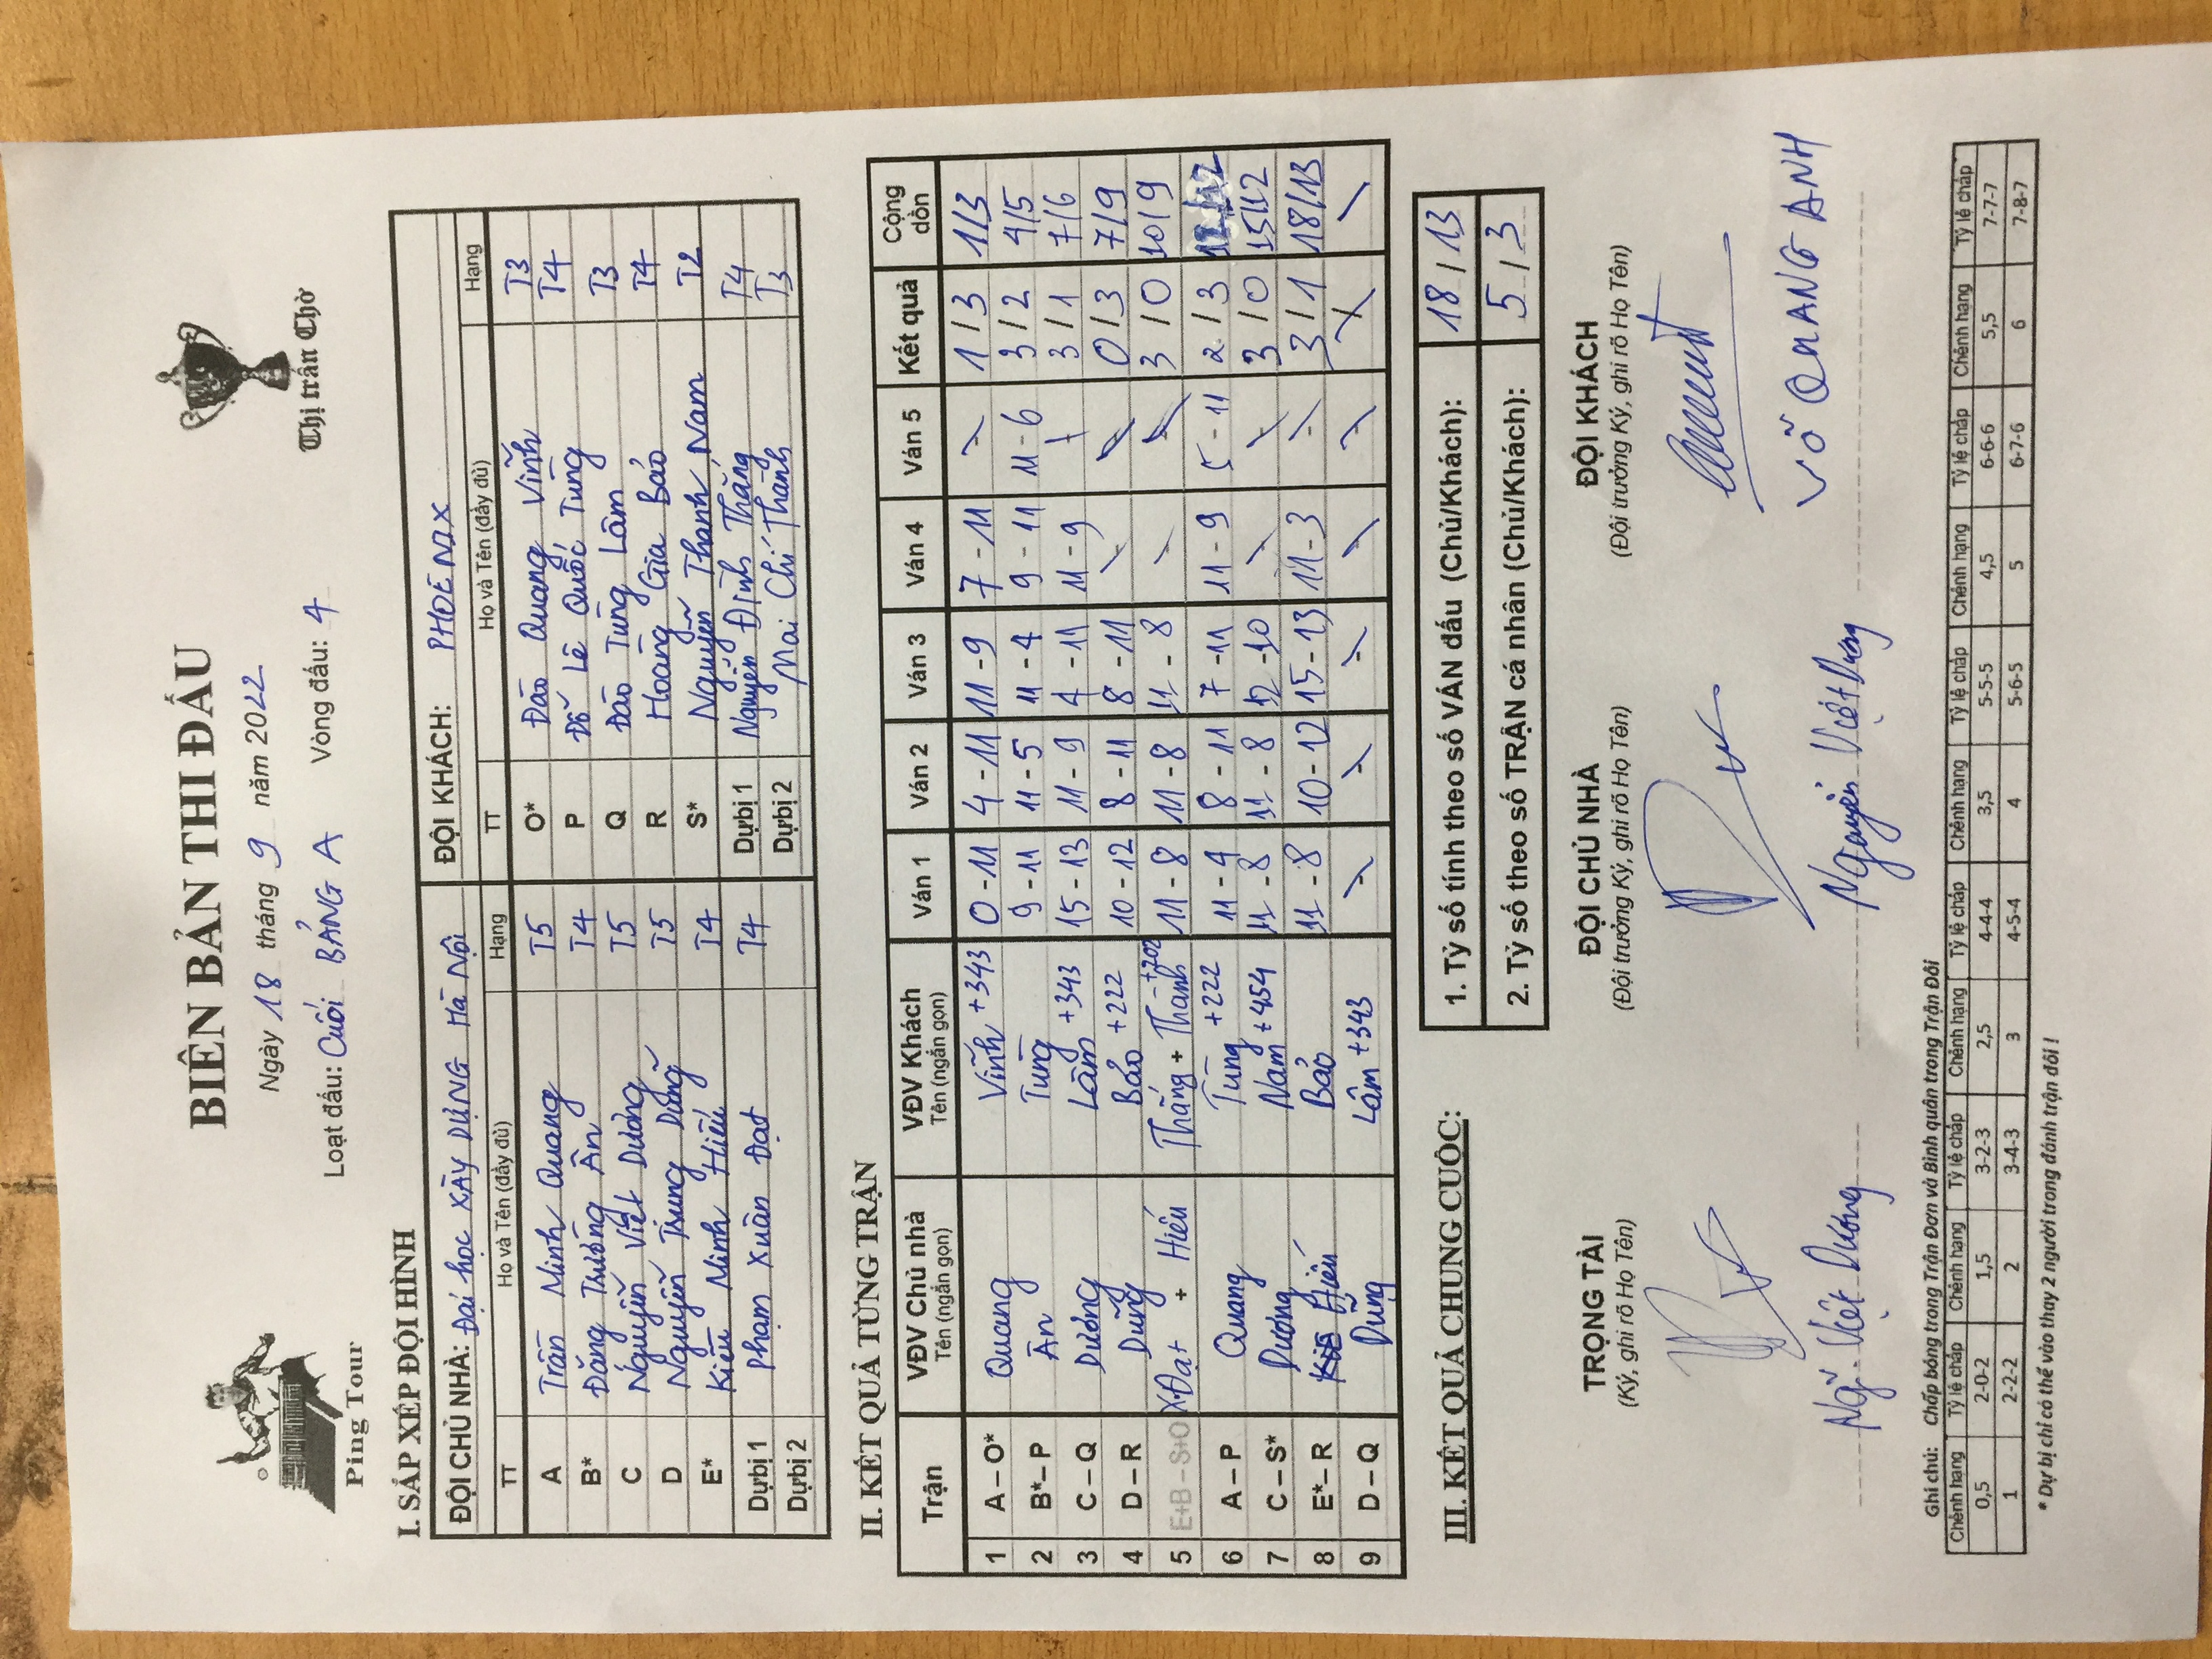 BIÊN BẢN THI ĐẤU
Ping Tour
Thị trấn Chờ
Ngày 18 tháng 9 năm 2022
Loạt đấu: Cuối BẢNG A Vòng đấu: 4
I. SẮP XẾP ĐỘI HÌNH
ĐỘI CHỦ NHÀ: Đại học XÂY DỰNG Hà Nội ĐỘI KHÁCH: PHOENIX
TT Họ và Tên (đầy đủ) Hạng TT Họ và Tên (đầy đủ) Hạng
A Trần Minh Quang T5 O* Đào Quang Vinh T3
B* Đặng Trường Ân T4 P Đỗ Lê Quốc Tùng T4
C Nguyễn Việt Dương T5 Q Đào Tùng Lâm T3
D Nguyễn Trung Dũng T5 R Hoàng Gia Bảo T4
E* Kiều Minh Hiếu T4 S* Nguyễn Thanh Nam T2
Dự bị 1 Phạm Xuân Đạt T4 Dự bị 1 Nguyễn Định Thắng T4
Dự bị 2 Dự bị 2 Mai Chí Thành T3
II. KẾT QUẢ TỪNG TRẬN
Trận VĐV Chủ nhà VĐV Khách Ván 1 Ván 2 Ván 3 Ván 4 Ván 5 Kết quả Cộng dồn
Tên (ngắn gọn) Tên (ngắn gọn)
1 A – O* Quang Vinh +343 0 - 11 4 - 11 11 - 9 7 - 11 1 / 3 1/3
2 B* – P Ân Tùng 9 - 11 11 - 5 11 - 4 9 - 11 11 - 6 3 / 2 4/5
3 C – Q Dương Lâm +343 15 - 13 11 - 9 4 - 11 11 - 9 3 / 1 7/6
4 D – R Dũng Bảo +222 10 - 12 8 - 11 8 - 11 0 / 3 7/9
5 E+B – S+O XĐạt + Hiếu Thắng + Thanh 11 - 8 11 - 8 11 - 8 3 / 0 10/9
6 A – P Quang Tùng +222 11 - 4 8 - 11 7 - 11 11 - 9 5 - 11 2 / 3 12/12
7 C – S* Dương Nam +454 11 - 8 11 - 8 12 - 10 3 / 0 15/12
8 E* – R Hiếu Bảo 11 - 8 10 - 12 15 - 13 11 - 3 3 / 1 18/13
9 D – Q Dũng Lâm +343
III. KẾT QUẢ CHUNG CUỘC:
1. Tỷ số tính theo số VÁN đấu (Chủ/Khách): 18 / 13
2. Tỷ số theo số TRẬN cá nhân (Chủ/Khách): 5 / 3
TRỌNG TÀI ĐỘI CHỦ NHÀ ĐỘI KHÁCH
(Ký, ghi rõ Họ Tên) (Đội trưởng Ký, ghi rõ Họ Tên) (Đội trưởng Ký, ghi rõ Họ Tên)
Ngỹ. Việt Dương Nguyễn Việt Dương VÕ QUANG ANH
Ghi chú: Chấp bóng trong Trận Đơn và Bình quân trong Trận Đôi
Chênh hạng Tỷ lệ chấp Chênh hạng Tỷ lệ chấp Chênh hạng Tỷ lệ chấp Chênh hạng Tỷ lệ chấp Chênh hạng Tỷ lệ chấp Chênh hạng Tỷ lệ chấp
0,5 2-0-2 1,5 3-2-3 2,5 4-4-4 3,5 5-5-5 4,5 6-6-6 5,5 7-7-7
1 2-2-2 2 3-4-3 3 4-5-4 4 5-6-5 5 6-7-6 6 7-8-7
* Dự bị chỉ có thể vào thay 2 người trong đánh trận đôi !